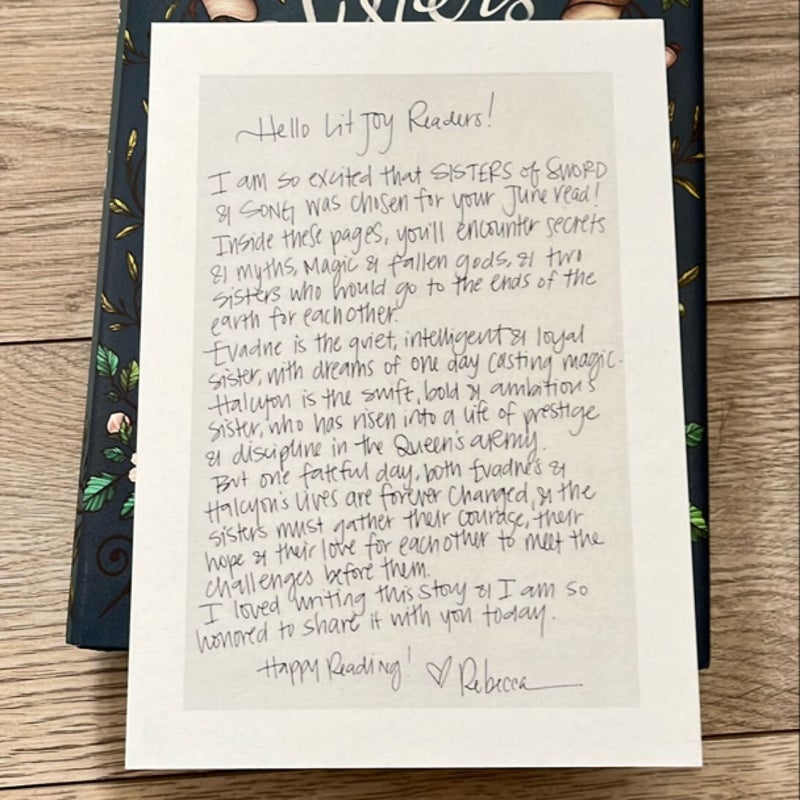 Sisters
Hello LitJoy Readers!
I am so excited that SISTERS of SWORD
& SONG was chosen for your June read!
Inside these pages, you'll encounter secrets
& myths, magic & fallen gods, & two
sisters who would go to the ends of the
earth for each other.
Evadne is the quiet, intelligent & loyal
sister, with dreams of one day casting magic.
Halcyon is the swift, bold & ambitious
sister, who has risen into a life of prestige
& discipline in the Queen's army.
But one fateful day, both Evadne's &
Halcyon's lives are forever changed, & the
sisters must gather their courage, their
hope & their love for each other to meet the
challenges before them.
I loved writing this story & I am so
honored to share it with you today.
Happy Reading! ♡ Rebecca